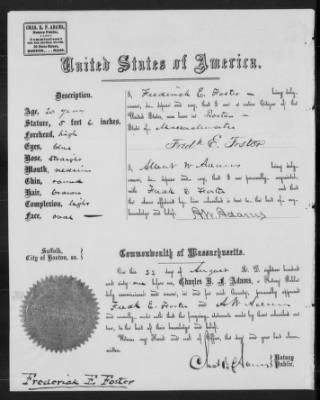 CHAS. B. F. ADAMS,
Notary Public,
Commissioner
BOSTON, MASS.
United States of America.
Description.
Age, 20 years
Stature, 5 feet 6 inches.
Forehead, high
Eyes, blue
Nose, straight
Mouth, medium
Chin,
Hair, brown
Complexion, light
Face, oval
I, Frederick E. Foster being duly
sworn, do depose and say, that I am a native Citizen of the
United States, having been born in Boston
State of Massachusetts
Fredk E. Foster
I, Albert W. Adams being duly
sworn, do depose and say, that I am personally acquainted
with Fredk E Foster and that
the above affiant has been
knowledge and belief. A W Adams
Suffolk,
City of Boston, ss.
Commonwealth of Massachusetts.
On this 22 day of August A. D. eighteen hundred
and sixty one before me, Charles B. F. Adams, a Notary Public
duly commissioned and sworn, in and for said County, personally appeared
Fredk E. Foster and A W Adams
and severally made oath that the foregoing statements made by them subscribed are
true, to the best of their knowledge and belief.
Witness my Hand and Seal of Office, the day and year last above
written.
Chas B F Adams Notary Public.
Frederick E. Foster